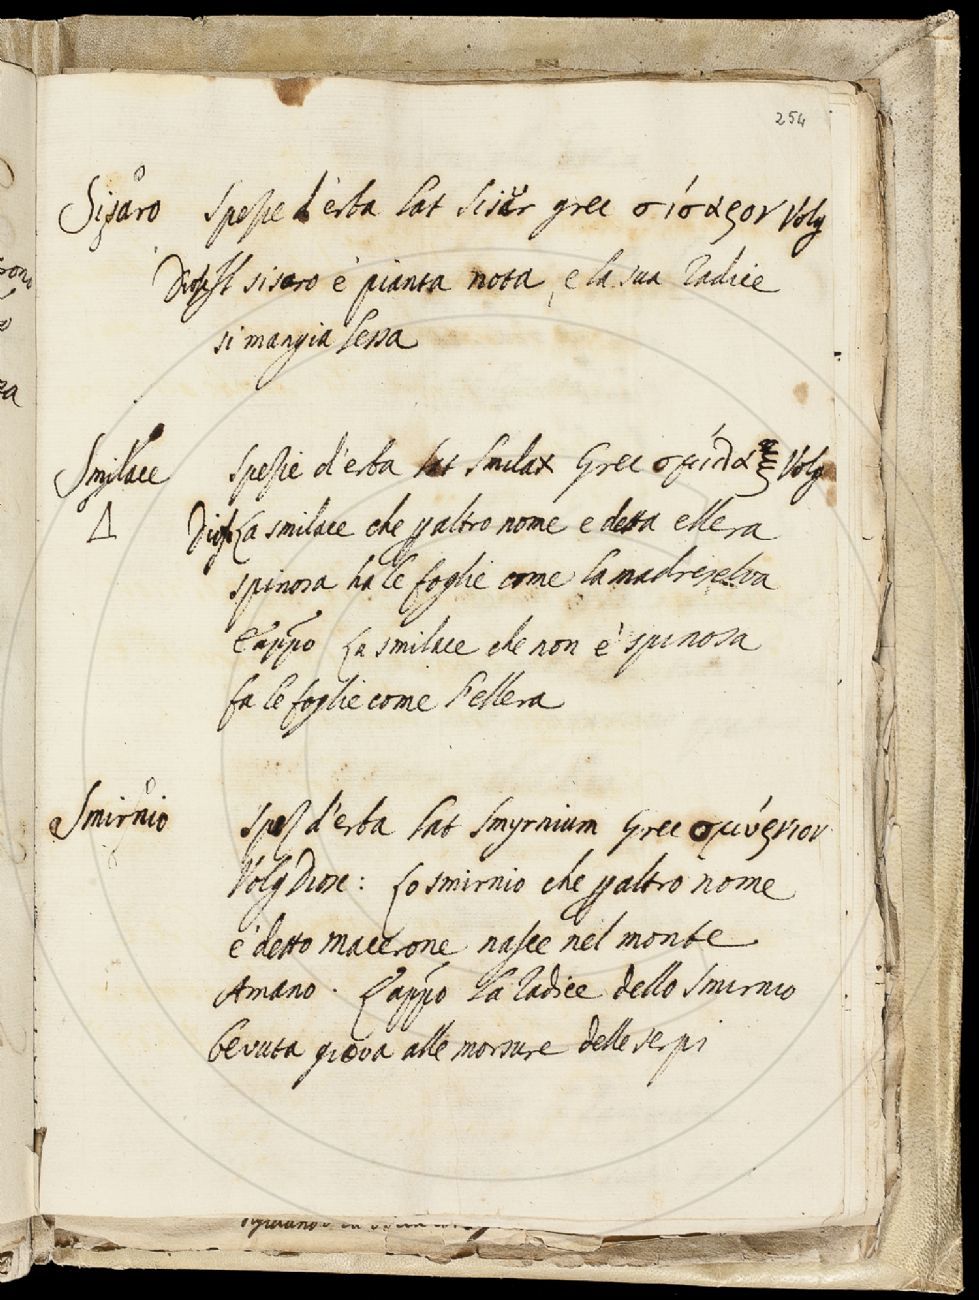 254
Sisaro Spezie d'erba Lat Sisar grec σίσαρον Volg
Diosc Il sisaro è pianta nota, e la sua radice
si mangia lessa
Smilace Spezie d'erba Lat Smilax Grec σμίλαξ Volg
Diosc La smilace che p altro nome e detta ellera
spinosa ha le foglie come la madreselva
E appo La smilace che non è spinosa
fa le foglie come l'ellera
Smirnio Spez d'erba Lat Smyrnium Grec σμύρνιον
Volg Diosc: Lo smirnio che p altro nome
è detto macerone nasce nel monte
Amano. E appo la radice dello Smirnio
bevuta giova alle morsure delle serpi